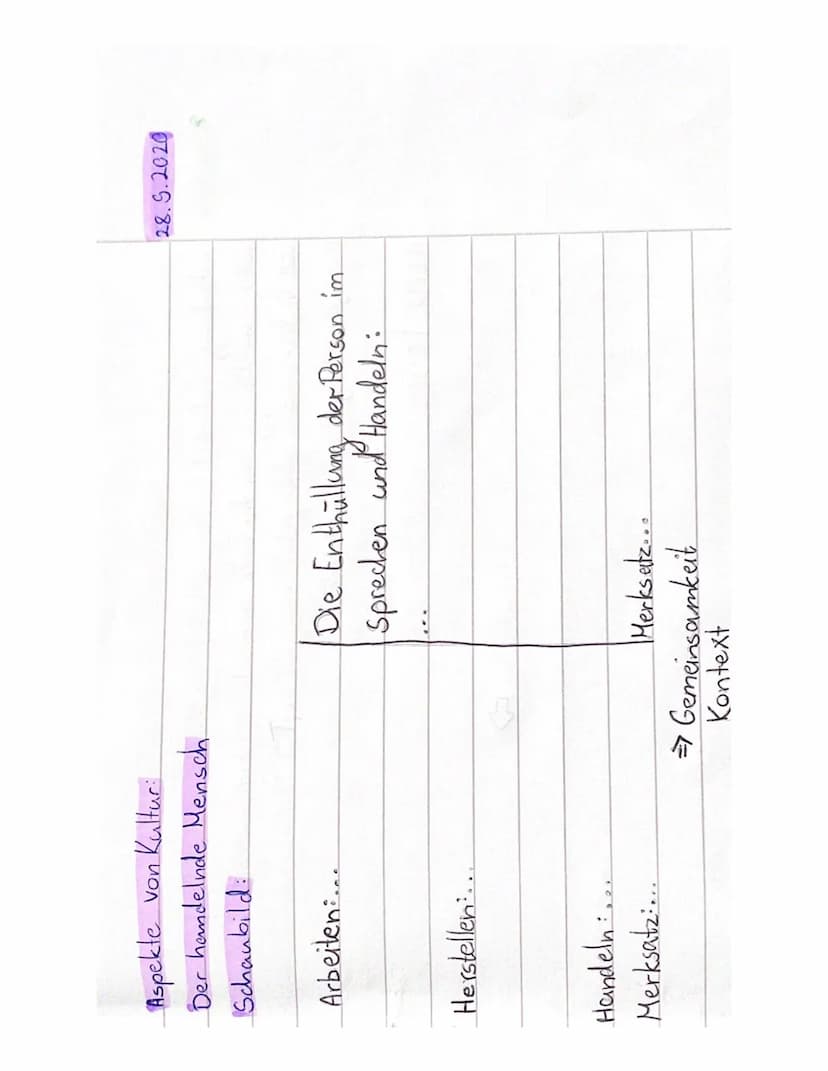 28.9.2020
Aspekte von Kultur:
Der handelnde Mensch
Schaubild:
Arbeiten:...
Die Enthüllung der Person im
Sprechen und Handeln:
...
Herstellen:...
Handeln:...
Merksatz:...
Merksatz...
=> Gemeinsamkeit
Kontext